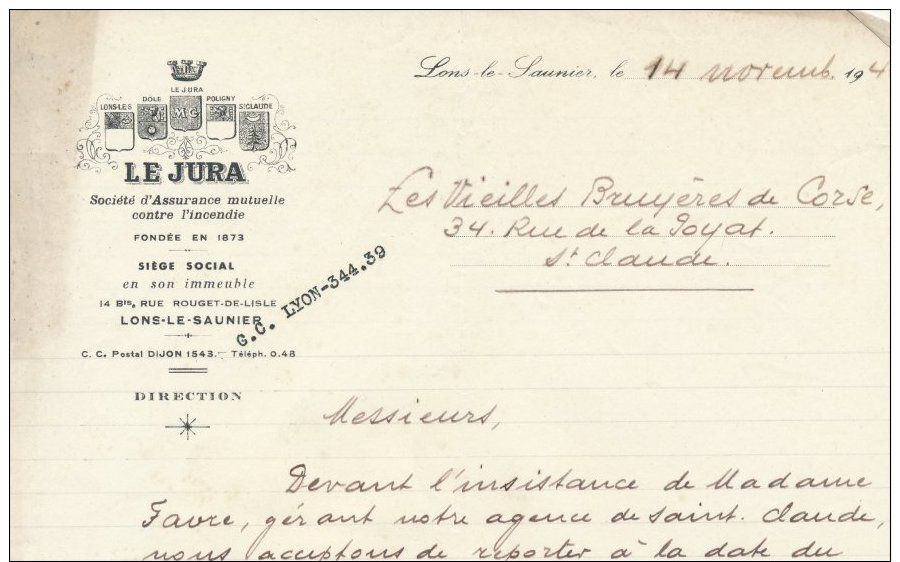 Lons-le-Saunier, le 14 novemb. 194
LE JURA
DOLE
POLIGNY
LONS-LES
St CLAUDE
MC
LE JURA
Société d'Assurance mutuelle
contre l'incendie
FONDÉE EN 1873
SIÈGE SOCIAL
en son immeuble
14 Bis, RUE ROUGET-DE-LISLE
LONS-LE-SAUNIER
C. C. Postal DIJON 1543.— Téléph. 0.48
G.C. LYON-344.39
DIRECTION
Les Vieilles Bruyères de Corse,
34. Rue de la Poyat.
St Claude.
Messieurs,
Devant l'insistance de Madame
Favre, gérant notre agence de Saint. Claude,
nous acceptons de reporter à la date du